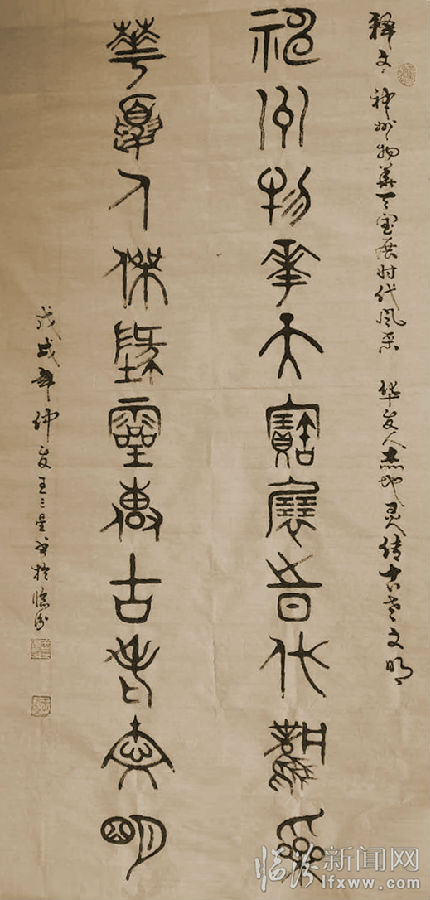 释文：神州物华天宝展时代风采 华夏人杰地灵传古老文明
神州物華天寶展時代風采
華夏人傑地靈傳古老文明
戊戌年仲夏王三星书於临汾
临汾新闻网
lfxww.com